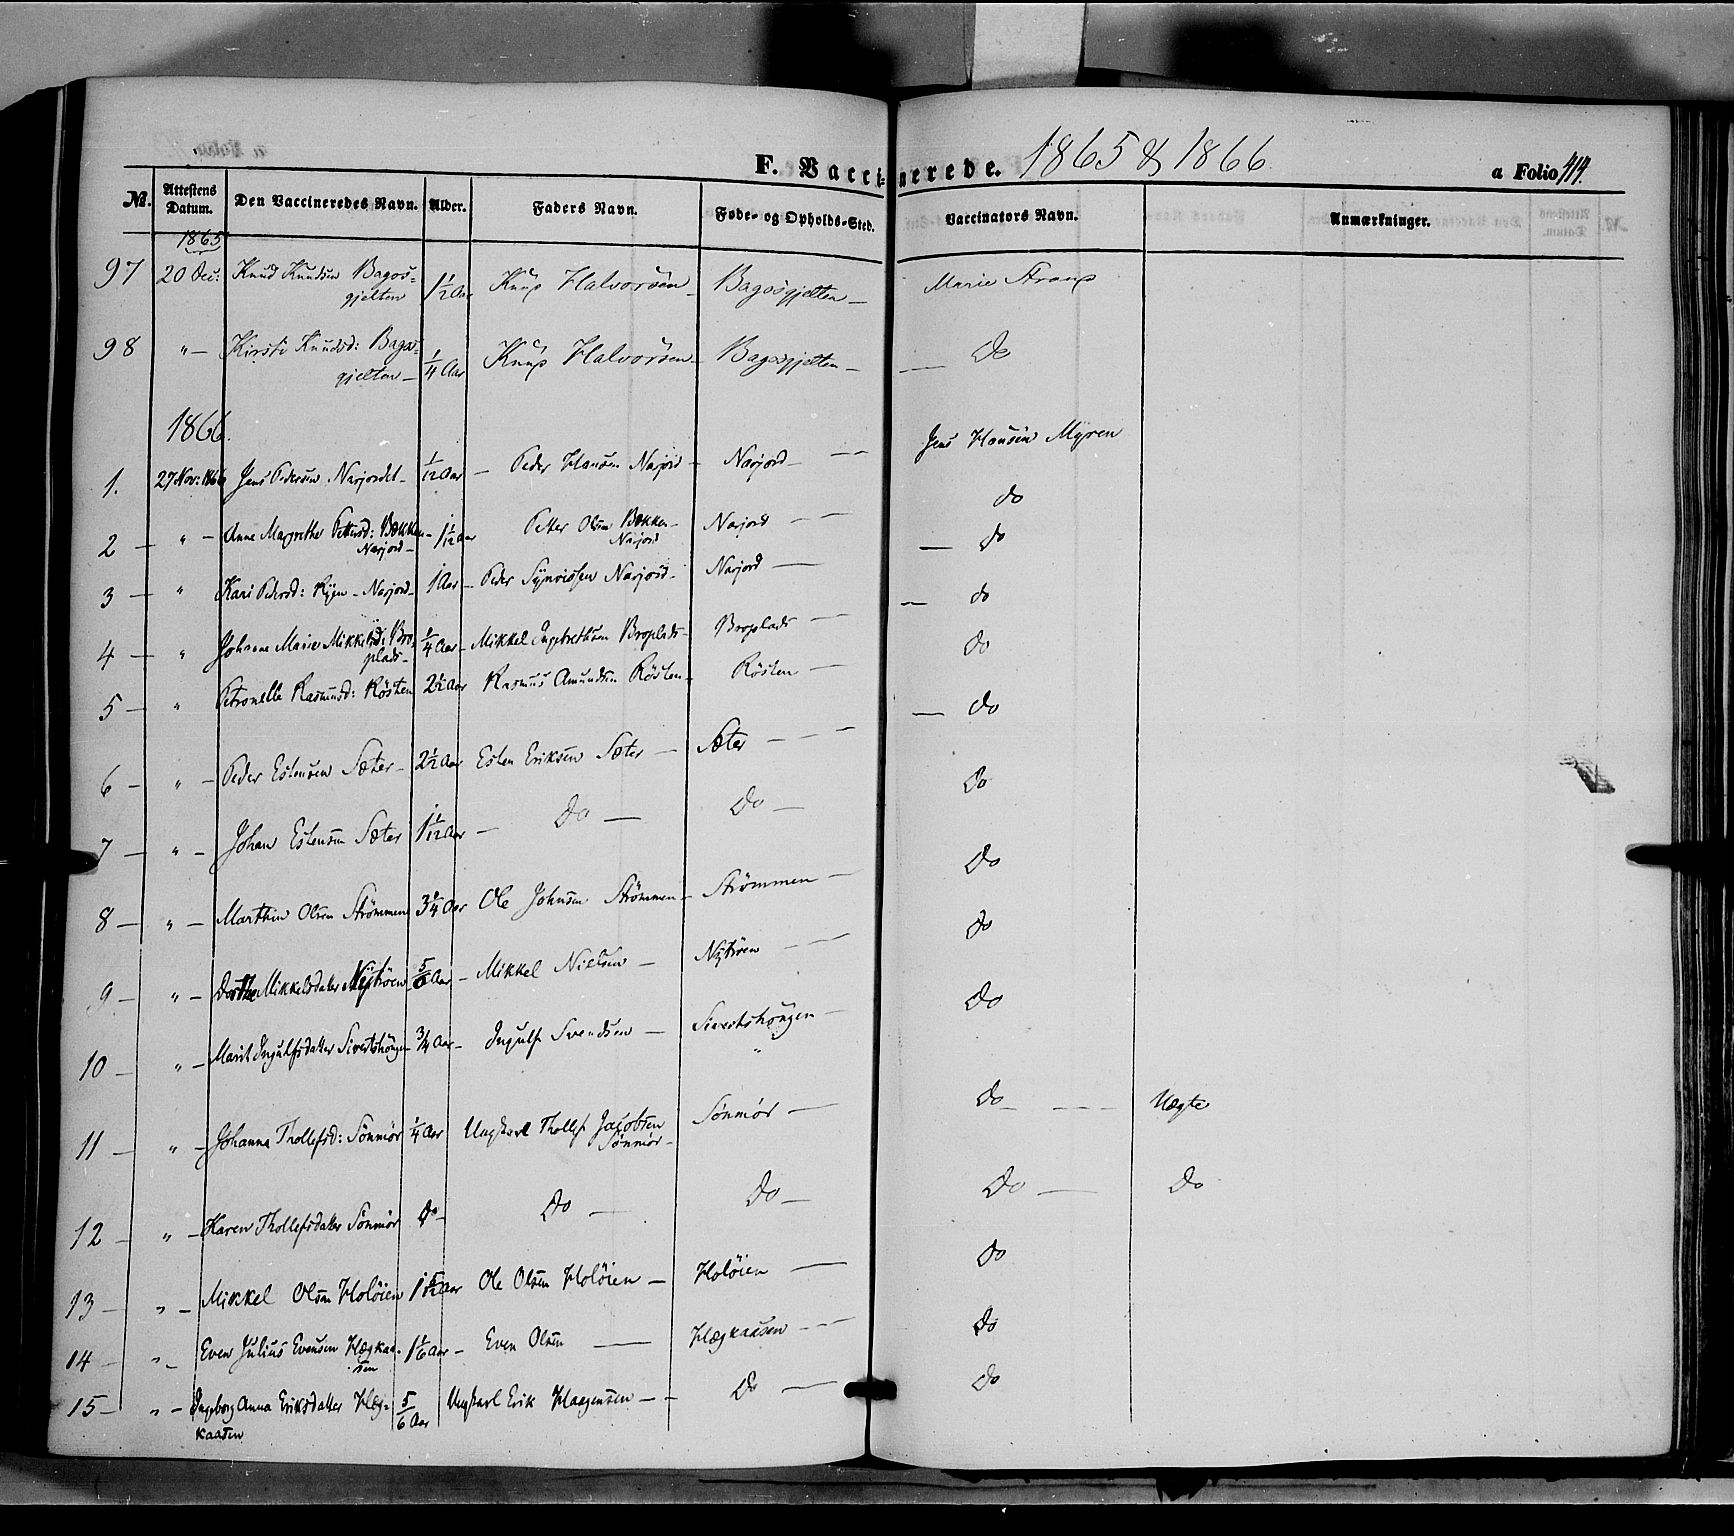 F. Vaccinerede. 1865 & 1866
a Folio 414.
No. Attestens Datum. Den Vaccineredes Navn. Alder. Faders Navn. Føde- og Opholds-Sted. Vaccinators Navn. Anmærkninger.
1865
97 20 Dec: Knud Knudsen Bagos=
gjelten 1 1/2 Aar Knud Halvorsen Bagosgjelten — Marie Straup
98 " — Kirsti Knudsd: Bagos=
gjelten — 1/4 Aar Knud Halvorsen — Bagosgjelten — Do
1866.
1. 27 Nov: 1866 Jens Pedersen Narjordet 1/12 Aar — Peder Hansen Narjord — Narjord — Jens Hansen Myren
do
2 — " — Anne Margrethe Pettersd: Bækken
Narjord — 1 1/12 Aar Petter Olsen Bækken
Narjord Narjord — — do
3 — " Kari Pedersd: Ryen — Narjord 1 Aar — Peder Synvissen Narjord — Narjord — do
4 — " Johanne Marie Mikkelsd: Bro=
plads — 1/4 Aar — Mikkel Ingebrethsen Broplads — Broplads — do
5 — " Petronelle Rasmusd: Røsten 2 1/2 Aar Rasmus Amundsen Røsten — Røsten — do
6 — " — Peder Estensen Sæter — 2 1/2 Aar Esten Eriksen Sæter — Sæter — — — Do
7 — " — Johan Estensen Sæter 1 1/12 Aar — Do — Do —
Do
8 — " — Marthin Olsen Strømmen 3 1/4 Aar Ole Johnsen Strømmen — Strømmen — Do
9 — " — Dorthe Mikkelsdater Nytrøen 5/6 Aar — Mikkel Nielsen — Nytrøen — — Do
10 — " — Marit Ingulfsdatter Sivertshøugen 3/4 Aar — Ingulf Svendsen — Sivertshougen —
"
11 — " — Johanna Thollefsd: Sönmör 1/4 Aar Ungkarl Thollef Jacobsen
Sönmör — Sönmör — Do — — — Uægte
12 — " — Karen Thollefsdatter Sönmör Do — Do — Do — Do — Do
13 — " — Mikkel Olsen Holøien 1 5/12 Aar Ole Olsen Holøien — Holøien — Do
14 " — Even Julius Evensen Hægkaa=
sen 1 1/6 Aar — Even Olsen — Hægkaasen — — Do
15 — " — Ingeborg Anna Eriksdatter Hæg=
kaasen 5/6 Aar Ungkarl Erik Haagensen — — Do — Do